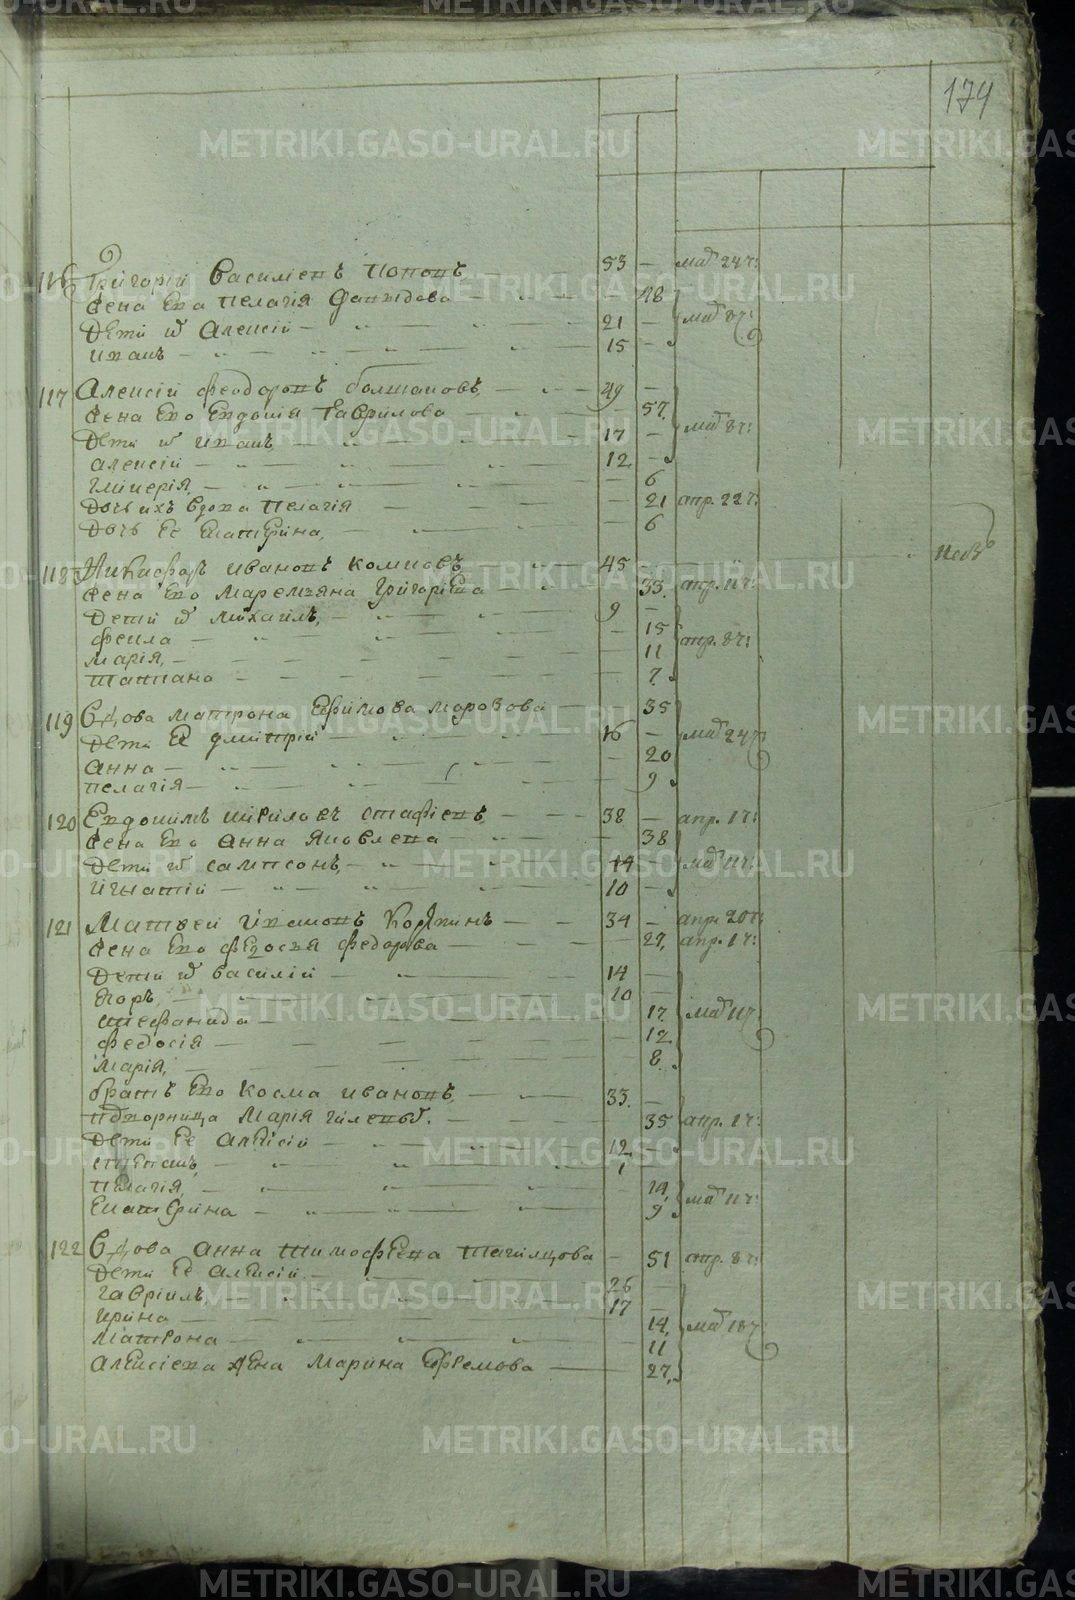 174
116 Григорій Василіевъ Поповъ — 53 — маї 24ч:
Жена Его Пелагія Давыдова — 48
Дети их Алексій — 21 — маї 8ч:
Иванъ — 15 —
117 Алексій Феодоровъ Болшаковъ — 49 —
Жена Его Евдокія Гаврилова — 57
Дети их Иванъ — 17 — маї 8ч:
Алексій — 12 —
Гликерія — 6
Дочь ихъ вдова Пелагія — 21 апр. 22ч:
Дочь Ее Екатерина, — 6
118 Никифоръ Ивановъ — 45 —
Жена Его Маремьяна Григоріева — 33. апр. 11ч:
Дети их Михаилъ, — 9 —
Фекла — 15 апр. 8ч:
Марія, — 11
Татіана — 7
119 Вдова Матрона Ефимова Морозова — 35
Дети Ее Дмитрій — 16 — маї 24ч:
Анна — 20
Пелагія — 9
120 Евдокимъ Кириловъ — 38 — апр. 1ч:
Жена Его Анна Яковлева — 38
Дети их Сампсонъ, — 14 — маї 11ч:
Игнатій — 10 —
121 Матвей Ивановъ — 34 — апр. 20ч:
Жена Его Федосья Федорова — 27, апр. 1ч:
Дети их Василій — 14 —
Егоръ, — 10 —
Стефанида — 17 маї 11ч:
Федосія — 12
Марія, — 8
Братъ Его Косма Ивановъ, — 33. —
Марія — 35 апр. 1ч:
Дети Ее Алексій — 12 —
Степанъ, — 1
Пелагія, — 14,
Екатерина — 9 маї 11ч:
122 Вдова Анна Тимофеева Тагилцова — 51 апр. 8ч:
Дети Ее Алексій — 26 —
Гавріилъ, — 17 —
Ирина — 14, маї 18ч:
Матрона — 11
Алексіева Жена Марина Ефремова — 27,
METRIKI.GASO-URAL.RU